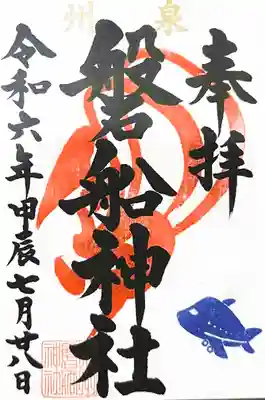 泉州
奉拝
磐船神社
令和六年甲辰七月廿八日